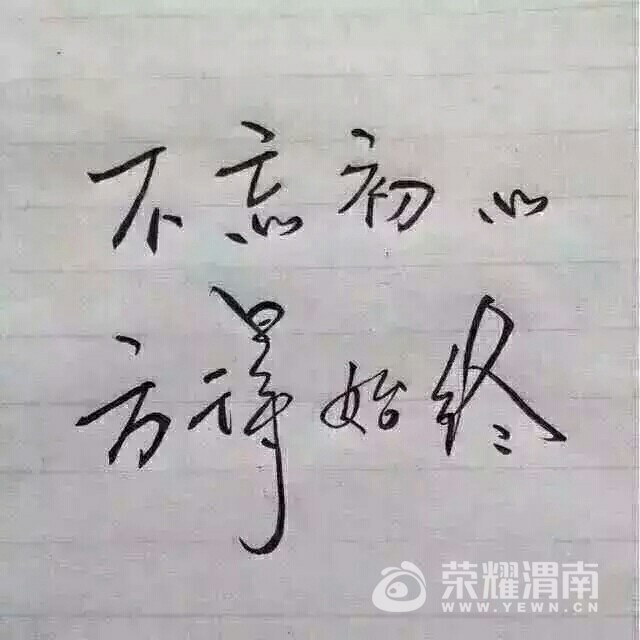 不忘初心
方得始终
荣耀渭南
WWW.YEWN.CN